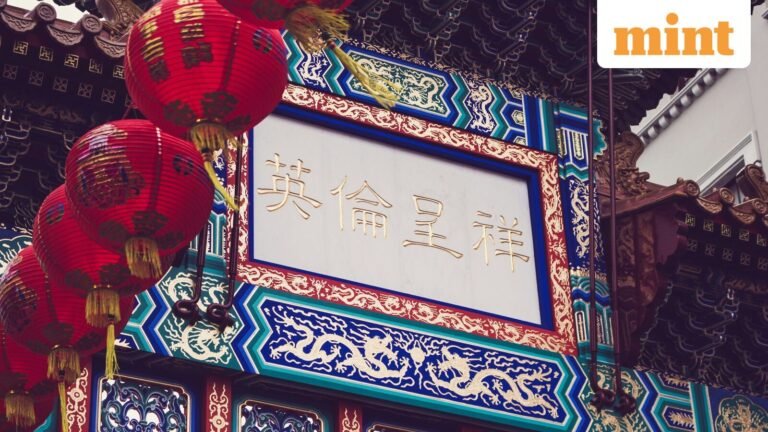 mint
英倫呈祥